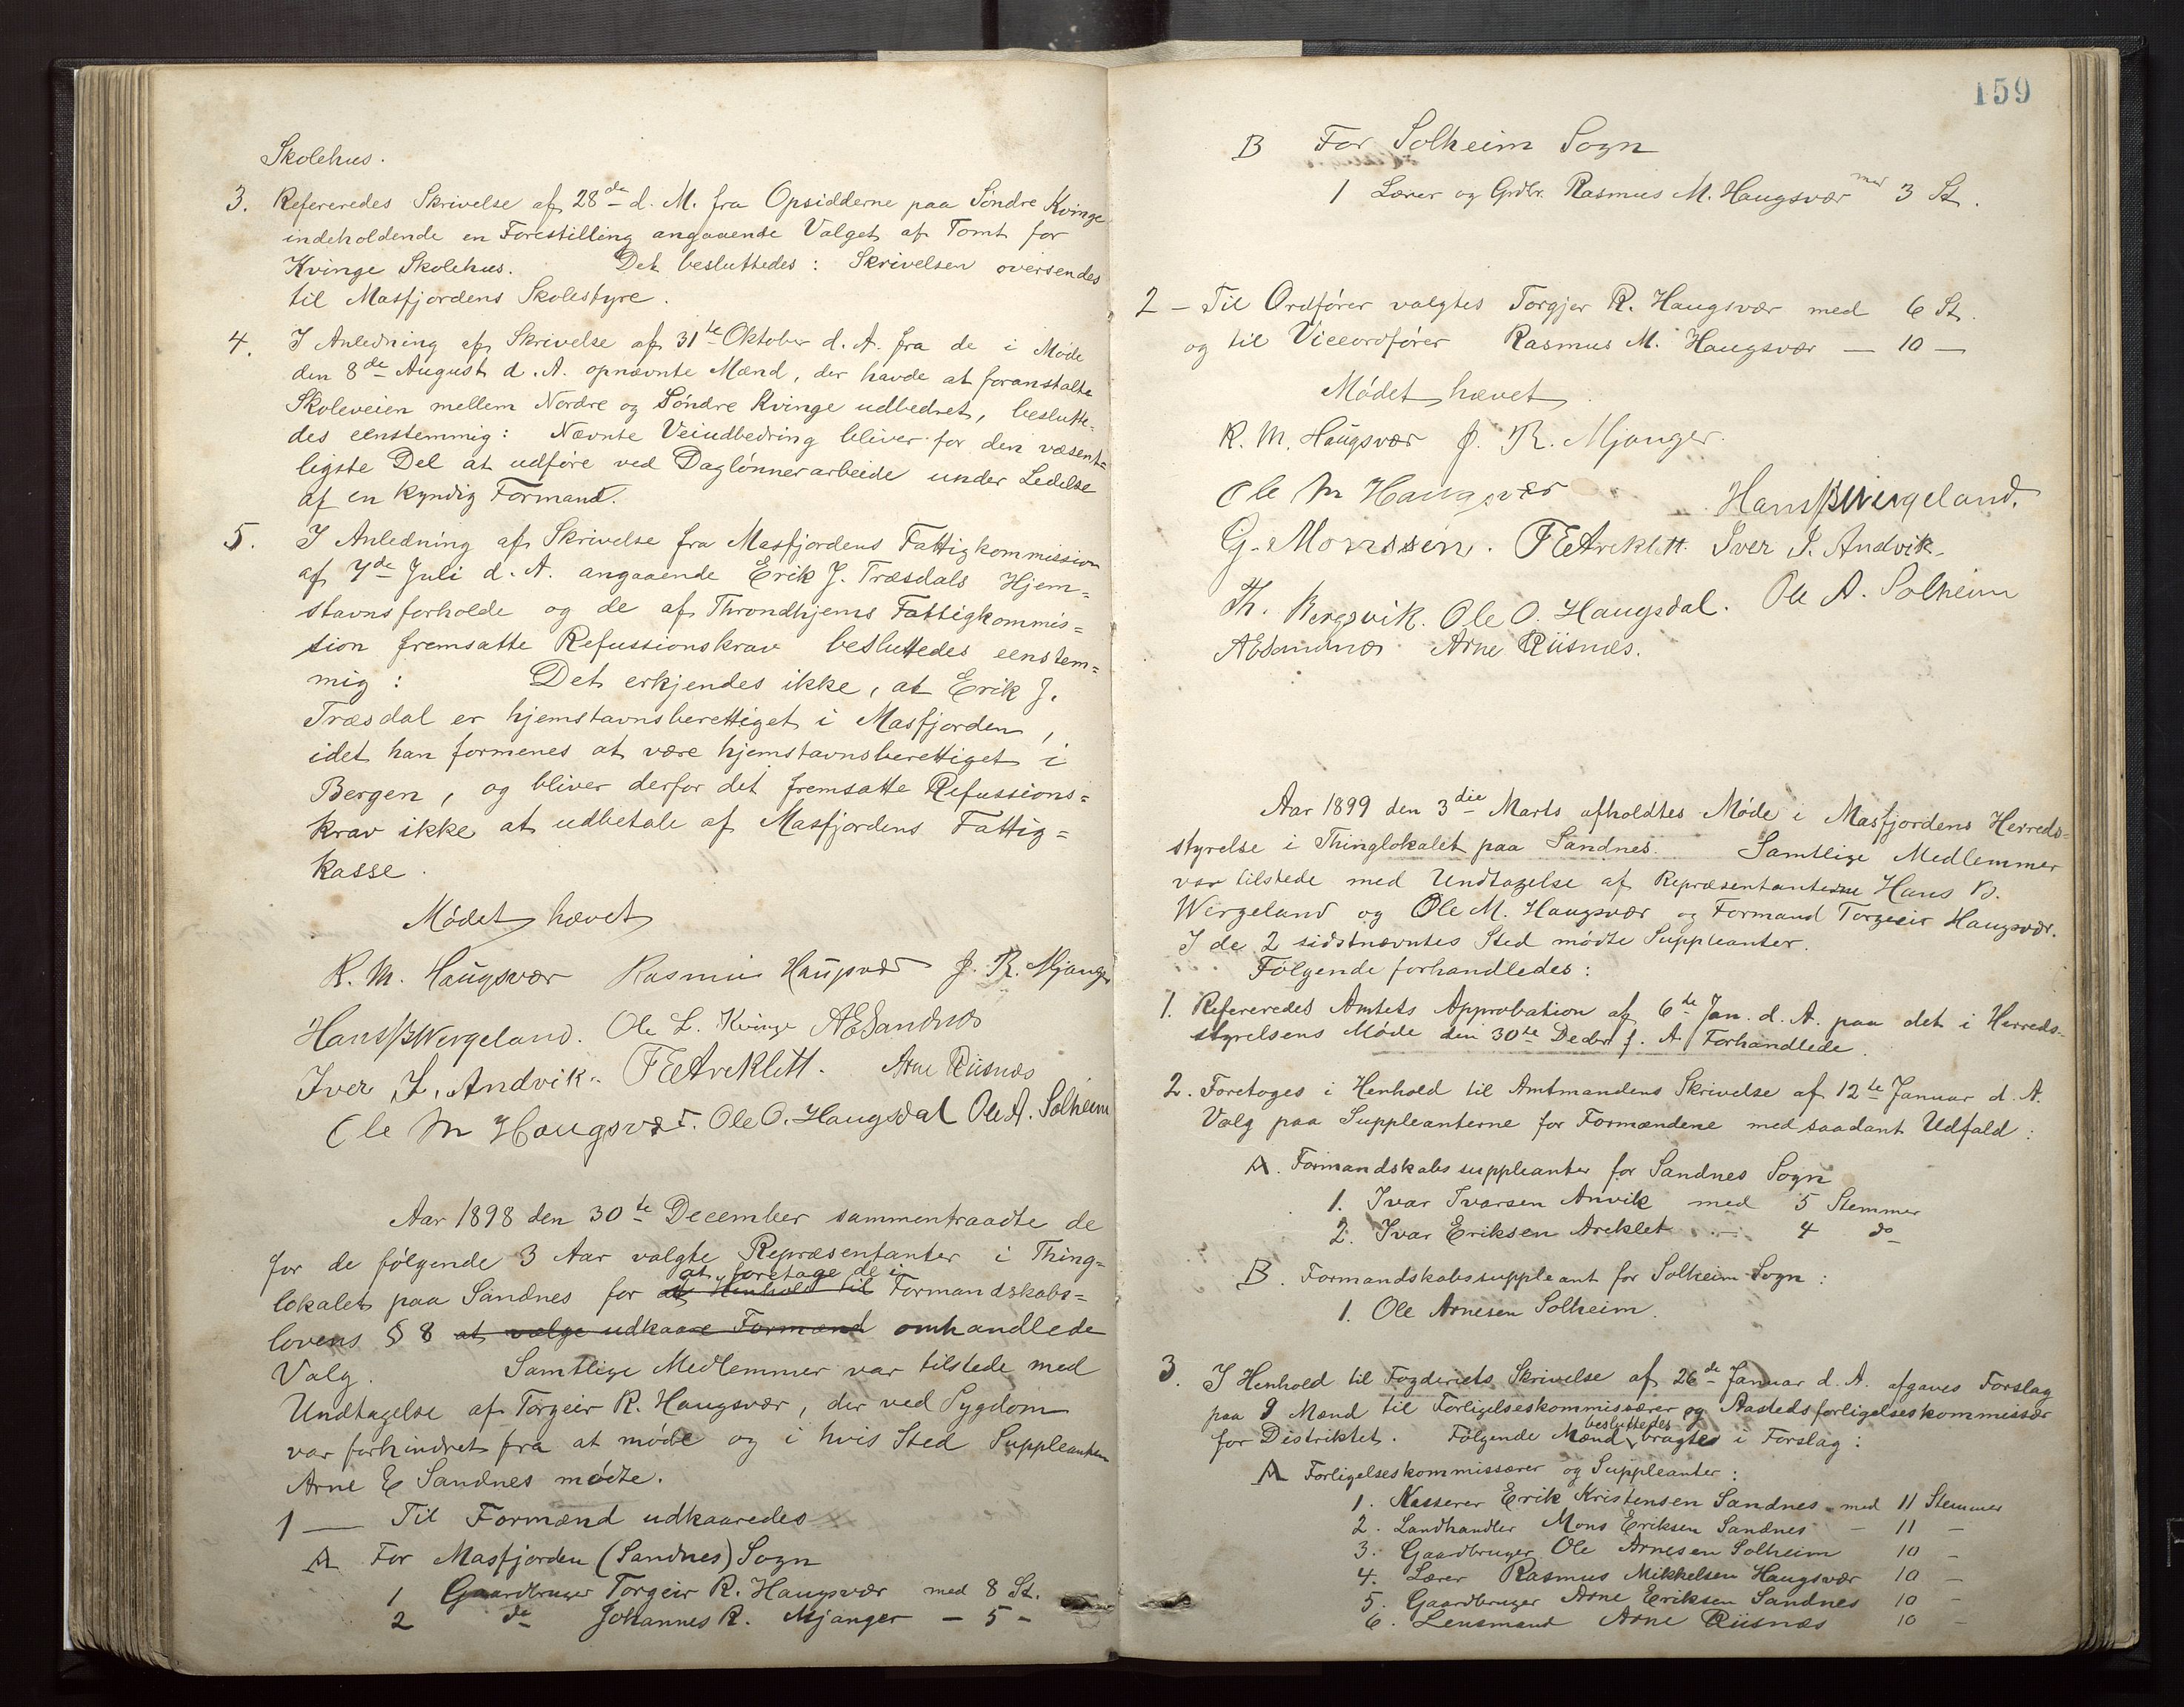 Skolehus.
3. Refereredes Skrivelse af 28de d. M. fra Opsidderne paa Søndre Kvinge
indeholdende en Forestilling angaaende Valget af Tomt for
Kvinge Skolehus. Det besluttedes: Skrivelsen oversendes
til Masfjordens Skolestyre.
4. I Anledning af Skrivelse af 31te Oktober d. A. fra de i Møde
den 8de August d. A. opnævnte Mænd, der havde at foranstalte
Skoleveien mellem Nordre og Søndre Kvinge udbedret, beslutte-
des eenstemmig: Nævnte Veiudbedring bliver for den væsent-
ligste Del at udføre ved Daglønnerarbeide under Ledelse
af en kyndig Formand.
5. I Anledning af Skrivelse fra Masfjordens Fattigkommission
af 7de Juli d. A. angaaende Erik J. Træsdals Hjem-
stavnsforholde og de af Throndhjems Fattigkommis-
sion fremsatte Refussionskrav besluttedes eenstem-
mig: Det erkjendes ikke, at Erik J.
Træsdal er hjemstavnsberettiget i Masfjorden,
idet han formenes at være hjemstavnsberettiget i
Bergen, og bliver derfor det fremsatte Refussions-
krav ikke at udbetale af Masfjordens Fattig-
kasse.
Mødet hævet
R. M. Haugsvær Rasmus Haugsvær J. R. Mjanger
Hans B Wergeland. Ole L. Kvinge AESandnæs
Iver I. Andvik. FEAreklett. Arne Riisnæs
Ole M Haugsvær. Ole O. Haugsdal Ole A. Solheim
Aar 1898 den 30te December sammentraadte de
for de følgende 3 Aar valgte Repræsentanter i Thing-
at foretage de i
lokalet paa Sandnes for at Henhold til Formandskabs-
lovens § 8 at vælge udkaare Formænd omhandlede
Valg. Samtlige Medlemmer var tilstede med
Undtagelse af Torgeir R. Haugsvær, der ved Sygdom
var forhindret fra at møde og i hvis Sted Suppleanten
Arne E Sandnes mødte.
1 — Til Formænd udkaaredes
A For Masfjorden (Sandnes) Sogn
1 Gaardbruger Torgeir R. Haugsvær med 8 St.
2 do Johannes R. Mjanger — 5 —
159
B For Solheim Sogn
1 Lærer og Grdbr. Rasmus M. Haugsvær med 3 St.
2 — Til Ordfører valgtes Torgjer R. Haugsvær med 6 St.
og til Viceordfører Rasmus M. Haugsvær — 10 —
Mødet hævet
R. M. Haugsvær J. R. Mjanger.
Ole M Haugsvær Hans B Wergeland.
G. Monssen. FEAreklett. Iver I. Andvik.
Th. Bergsvik. Ole O. Haugsdal. Ole A. Solheim
AESandnæs Arne Riisnæs.
Aar 1899 den 3die Marts afholdtes Møde i Masfjordens Herreds-
styrelse i Thinglokalet paa Sandnes. Samtlige Medlemmer
var tilstede med Undtagelse af Repræsentanterne Hans B.
Wergeland og Ole M. Haugsvær og Formand Torgeir Haugsvær.
I de 2 sidstnævntes Sted mødte Suppleanter.
Følgende forhandledes:
1. Refereredes Amtets Approbation af 6te Jan. d. A. paa det i Herreds-
styrelsens Møde den 30te Decbr f. A. Forhandlede.
2. Foretoges i Henhold til Amtmandens Skrivelse af 12te Januar d. A.
Valg paa Suppleanterne for Formændene med saadant Udfald:
A. Formandskabssuppleanter for Sandnes Sogn
1. Ivar Ivarsen Anvik med 5 Stemmer
2. Ivar Eriksen Areklet — 4 do
B. Formandskabssuppleant for Solheim Sogn:
1. Ole Arnesen Solheim.
3. I Henhold til Fogderiets Skrivelse af 26de Januar d. A. afgaves Forslag
paa 9 Mænd til Forligelseskommissærer og Aastedsforligelseskommissær
besluttedes
for Distriktet. Følgende Mænd bragtes i Forslag:
A Forligelseskommissærer og Suppleanter:
1. Kasserer Erik Kristensen Sandnes med 11 Stemmer
2. Landhandler Mons Eriksen Sandnes — 11 —
3. Gaardbruger Ole Arnesen Solheim 10 —
4. Lærer Rasmus Mikkelsen Haugsvær 10 —
5. Gaardbruger Arne Eriksen Sandnes 10 —
6. Lensmand Arne Riisnæs 10 —